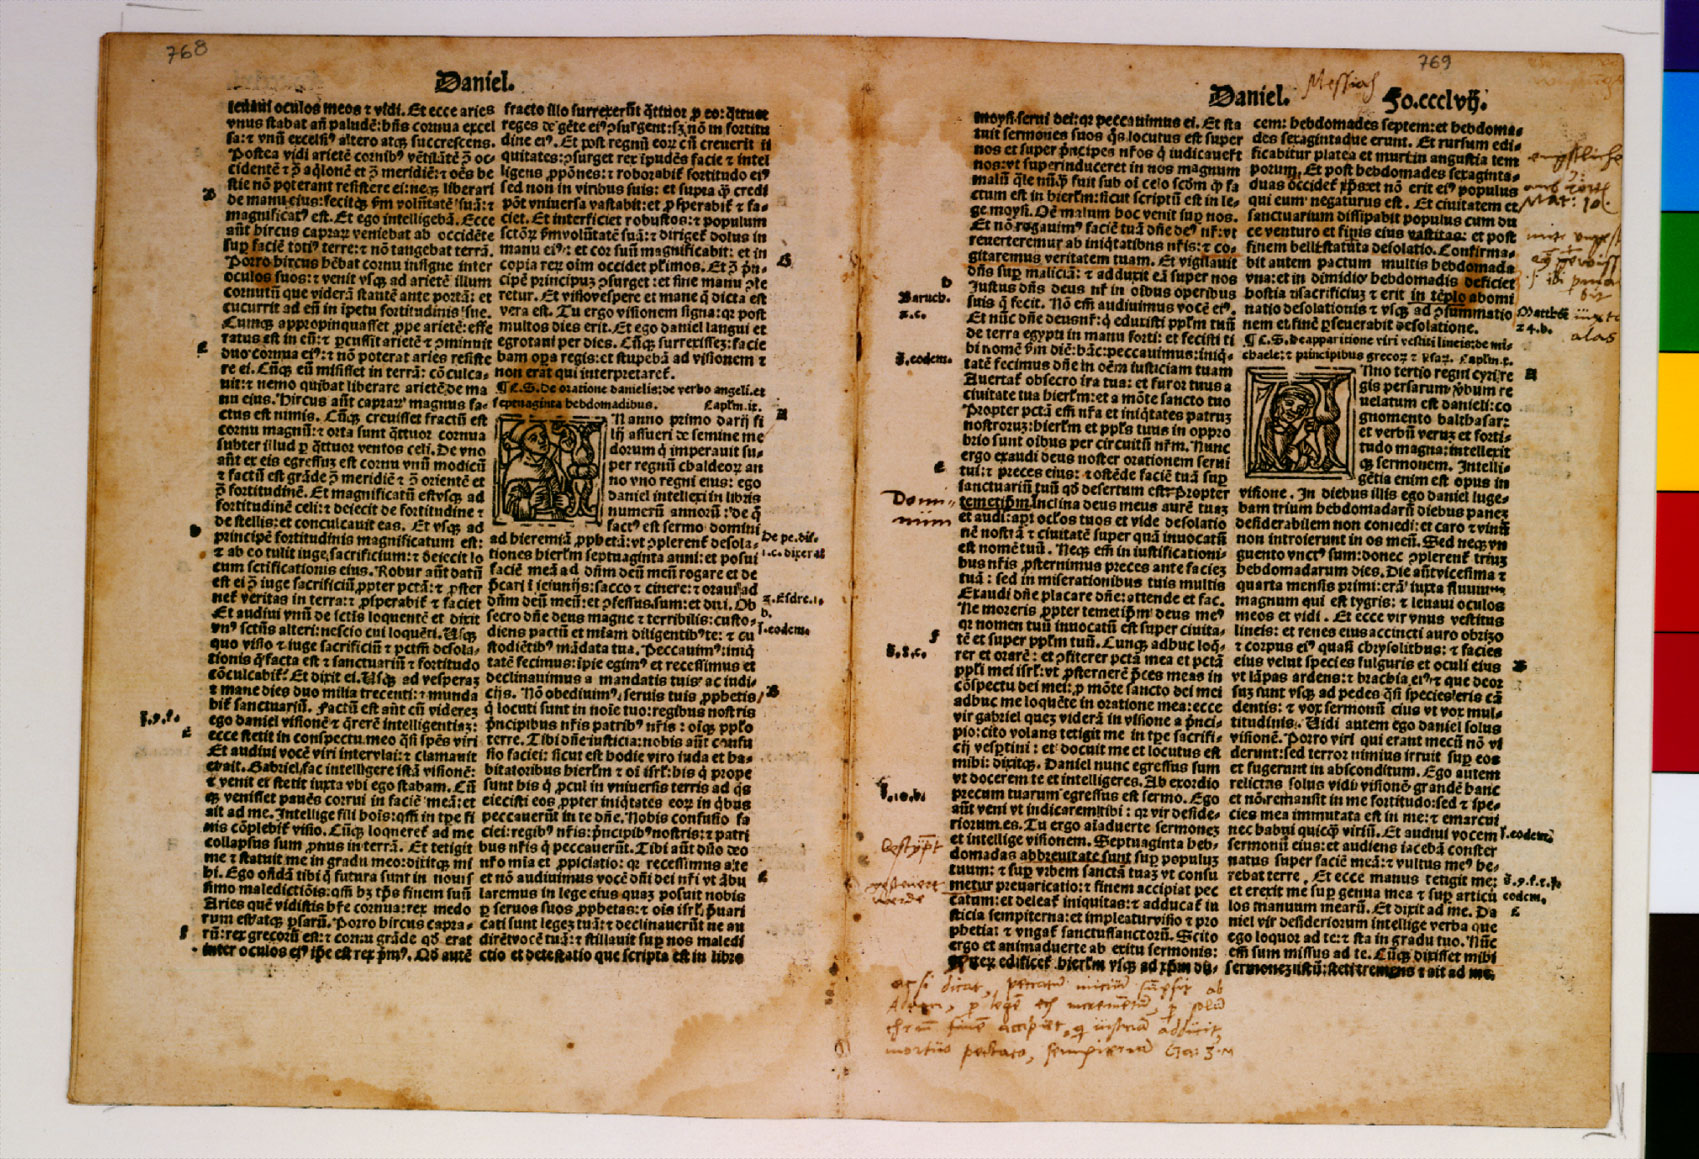 768
Daniel.
leuaui oculos meos ⁊ vidi. Et ecce aries
vnus stabat añ paludē: hñs cornua excel
sa: ⁊ vnū excelsiꝰ altero atqꝫ succrescens.
Postea vidi arietē cornibꝰ vētilātē ꝯ̄ oc-
cidentē ⁊ ꝯ̄ aqlonē et ꝯ̄ meridiē: ⁊ oēs be
stie nō poterant resistere ei: neqꝫ liberari
de manu eius: fecitqꝫ ẜm volūtatē suā: ⁊
magnificatꝰ est. Et ego intelligebā. Ecce
aūt hircus caprarꝫ veniebat ab occidēte
suꝑ faciē totiꝰ terre: ⁊ nō tangebat terrā.
Porro hircus hēbat cornu insigne inter
oculos suos: ⁊ venit vsqꝫ ad arietē illum
cornutū que viderā stantē ante portā: et
cucurrit ad eū in īpetu fortitudinis sue.
Cumqꝫ appropinquasset ꝓpe arietē: effe
ratus est in eū: ⁊ ꝑcussit arietē ⁊ ꝯminuit
duo cornua eiꝰ: ⁊ nō poterat aries resiste
re ei. Cūqꝫ eū misisset in terrā: cōculca-
uit: ⁊ nemo quibat liberare arietē de ma
nu eius. Hircus aūt caprarꝫ magnus fa-
ctus est nimis. Cūqꝫ creuisset fractū est
cornu magnū: ⁊ orta sunt qttuor cornua
subter illud ꝑ qttuor ventos celi. De vno
aūt ex eis egressuꝫ est cornu vnū modicū
⁊ factū est grāde ꝯ̄ meridiē ⁊ ꝯ̄ orientē et
ꝯ̄ fortitudinē. Et magnificatū est vsqꝫ ad
fortitudinē celi: ⁊ deiecit de fortitudine ⁊
de stellis: et conculcauit eas. Et vsqꝫ ad
principē fortitudinis magnificatum est:
⁊ ab eo tulit iuge sacrificium: ⁊ deiecit lo
cum sctificationis eius. Robur aūt datū
est ei ꝯ̄ iuge sacrificiū ꝓpter pctā: ⁊ ꝓster
net̄ veritas in terra: ⁊ ꝓsperabit̄ ⁊ faciet
Et audiui vnū de sctis loquentē et dixit
vnꝰ sctūs alteri: nescio cui loquēti. Vsqꝫ
quo visio ⁊ iuge sacrificiū ⁊ pctm̄ desola-
tionis q̄ facta est ⁊ sanctuariū ⁊ fortitudo
cōculcabit̄? Et dixit ei. Vsqꝫ ad vesperaꝫ
⁊ mane dies duo milia trecenti: ⁊ munda
bit̄ sanctuariū. Factū est aūt cū viderez
ego daniel visionē ⁊ q̄rerē intelligentiaꝫ:
ecce stetit in conspectu meo q̄si spēs viri
Et audiui vocē viri inter vlai: ⁊ clamauit
et ait. Gabriel fac intelligere istā visionē:
⁊ venit et stetit iuxta vbi ego stabam. Cū
qꝫ venisset pauēs corrui in faciē meā: et
ait ad me. Intellige fili hoīs: qm̄ in tp̄e fi
nis cōplebit̄ visio. Cūqꝫ loqueret̄ ad me
collapsus sum ꝓnus in terrā. Et tetigit
me ⁊ statuit me in gradu meo: dixitqꝫ mi
hi. Ego oñdā tibi q̄ futura sunt in nouis
simo maledictiōis: qm̄ hꝫ tp̄s finem suū
Aries quē vidistis hr̄e cornua: rex medo
rum est atqꝫ ꝑsarū. Porro hircus capra-
rū: rex grecorū est: ⁊ cornu grāde qd̄ erat
inter oculos eiꝰ ip̄e est rex prīmꝰ. Qd̄ autē
fracto illo surrexerūt qttuor ꝓ eo: qttuor
reges de gēte eiꝰ ꝯsurgent: sꝫ nō in fortitu
dine eiꝰ. Et post regnū eorꝫ cū creuerīt ini
quitates: ꝯsurget rex īpudēs facie ⁊ intel
ligens ꝓpōnes: ⁊ roborabit̄ fortitudo eiꝰ
sed non in viribus suis: et supra q̄ credi
pōt vniuersa vastabit: et ꝓsperabit̄ ⁊ fa-
ciet. Et interficiet robustos: ⁊ populum
sctōrꝫ ẜm volūtatē suā: ⁊ diriget̄ dolus in
manu eiꝰ: et cor suū magnificabit: et in
copia reꝝ oīm occidet plimos. Et ꝯ̄ prīn-
cipē principuꝫ ꝯsurget: et sine manu ꝯte
retur. Et visio vespere et mane q̄ dicta est
vera est. Tu ergo visionem signa: qꝛ post
multos dies erit. Et ego daniel langui et
egrotaui per dies. Cūqꝫ surrexisseꝫ: facie
bam opa regis: et stupebā ad visionem ⁊
non erat qui interpretaret̄.
¶ C. S. de oratione danielis: de verbo angeli. et
septuaginta hebdomadibus. Capl'm. ix.
IN anno primo darij fi
lij assueri de semine me
dorum q̄ imperauit su-
per regnū chaldeorꝫ an
no vno regni eius: ego
daniel intellexi in libris
numerū annorū: de q̄
factꝰ est sermo domini
ad hieremiā ꝓphetā: vt ꝯplerent̄ desola-
tiones hierl'm septuaginta anni: et posui
faciē meā ad dñm deū meū rogare et de
p̄cari ī ieiunijs: sacco ⁊ cinere: ⁊ oraui ad
dñm deū meū: et ꝯfessus sum: et dixi. Ob
secro dñe deus magne ⁊ terribilis: custo-
diens pactū et miam diligentibꝰ te: ⁊ cu
stodiētibꝰ mādata tua. Peccauimꝰ: iniq̄
tatē fecimus: īpie egimꝰ et recessimus et
declinauimus a mandatis tuis ac iudi-
cijs. Nō obediuimꝰ seruis tuis ꝓphetis
q̄ locuti sunt in noīe tuo: regibus nostris
p̄ncipibus nr̄is patribꝰ nr̄is: oīqꝫ ppl'o
terre. Tibi dñe iusticia: nobis aūt confu
sio faciei: sicut est hodie viro iuda et ha-
bitatoribus hierl'm ⁊ oī isrl': his q̄ prope
sunt his q̄ ꝓcul in vniuersis terris ad q̄s
eiecisti eos ꝓpter iniq̄tates eorꝫ in q̄bus
peccauerūt in te dñe. Nobis confusio fa
ciei: regibꝰ nr̄is: p̄ncipibꝰ nostris: ⁊ patri
bus nr̄is q̄ peccauerūt. Tibi aūt dño deo
nr̄o mīa et ꝓpiciatio: qꝛ recessimus a te
et nō audiuimus vocē dñi dei nr̄i vt ābu
laremus in lege eius quaꝫ posuit nobis
ꝑ seruos suos ꝓphetas: ⁊ oīs isrl' p̄uari
cati sunt legeꝫ tuā: ⁊ declinauerūt ne au
dirēt vocē tuā: ⁊ stillauit suꝑ nos maledi
ctio et detestatio que scripta est in libro
B
C
D
ꝟ.9.f.
E
F
G
A
De pe. dis.
1. c. dixerat
2. Esdre. 1.
b.
ꝟ. eodem.
B
C
769
Daniel. Messias Fo. ccclvij.
moysi serui dei: qꝛ peccauimus ei. Et sta
tuit sermones suos q̄s locutus est super
nos et super p̄ncipes nr̄os q̄ iudicauer̄t
nos: vt superinduceret in nos magnum
malū q̄le nūq̄ fuit sub oī celo scd̄m q̄ fa
ctum est in hierl'm: sicut scriptū est in le-
ge moysi. Oē malum hoc venit suꝑ nos.
Et nō rogauimꝰ faciē tuā dñe deꝰ nr̄: vt
reuerteremur ab iniq̄tatibus nr̄is: ⁊ co-
gitaremus veritatem tuam. Et vigilauit
dñs suꝑ maliciā: ⁊ adduxit eā super nos
Justus dñs deus nr̄ in oībus operibus
suis q̄ fecit. Nō em̄ audiuimus vocē eiꝰ.
Et nūc dñe deus nr̄: q̄ eduxisti ppl'm tuū
de terra egypti in manu forti: et fecisti ti
bi nomē ẜm diē hāc: peccauimus: iniq̄-
tatē fecimus dñe in oēm iusticiam tuam
Auertat̄ obsecro ira tua: et furor tuus a
ciuitate tua hierl'm: et a mōte sancto tuo
Propter pctā em̄ nr̄a et iniq̄tates patruꝫ
nostroruꝫ: hierl'm et ppl's tuus in oppro
brio sunt oībus per circuitū nr̄m. Nunc
ergo exaudi deus noster orationem serui
tui: ⁊ preces eius: ⁊ ostēde faciē tuā suꝑ
sanctuariū tuū qd̄ desertum est: Propter
temetip̄m. Inclina deus meus aurē tuaꝫ
et audi: aperi oc'los tuos et vide desolatio
nē nostrā ⁊ ciuitatē super quā inuocatū
est nomē tuū. Neqꝫ em̄ in iustificationi-
bus nr̄is ꝓsternimus preces ante facieꝫ
tuā: sed in miserationibus tuis multis
Exaudi dñe placare dñe: attende et fac.
Ne moreris ꝓpter temetip̄m deus meꝰ
qꝛ nomen tuū inuocatū est super ciuita-
tē et super ppl'm tuū. Cunqꝫ adhuc loq̄-
rer et orarē: et ꝯfiterer pctā mea et pctā
ppl'i mei isrl': vt ꝓsternerē p̄ces meas in
cōspectu dei mei: ꝓ mōte sancto dei mei
adhuc me loquēte in oratione mea: ecce
vir gabriel queꝫ viderā in visione a p̄nci-
pio: cito volans tetigit me in tp̄e sacrifi-
cij vesꝑtini: et docuit me et locutus est
mihi: dixitqꝫ. Daniel nunc egressus sum
vt docerem te et intelligeres. Ab exordio
precum tuarum egressus est sermo. Ego
aūt veni vt indicarem tibi: qꝛ vir deside-
riorum es. Tu ergo aīaduerte sermoneꝫ
et intellige visionem. Septuaginta heb-
domadas abbreuiate sunt suꝑ populuꝫ
tuum: ⁊ suꝑ vrbem sanctā tuaꝫ vt consu
metur preuaricatio: ⁊ finem accipiat pec
catum: et deleat̄ iniquitas: ⁊ adducat̄ iu
sticia sempiterna: et impleatur visio ⁊ pro
phetia: ⁊ vngat̄ sanctus sanctorū. Scito
ergo et animaduerte ab exitu sermonis:
vt rex edificet̄ hierl'm vsqꝫ ad xp̄m du-
cem: hebdomades septem: et hebdoma-
des sexagintadue erunt. Et rursum edi-
ficabitur platea et muri in angustia tem
porum. Et post hebdomades sexaginta-
duas occidet̄ xp̄s et nō erit eiꝰ populus
qui eum negaturus est. Et ciuitatem et
sanctuarium dissipabit populus cum du
ce venturo et finis eius vastitas: et post
finem belli statuta desolatio. Confirma-
bit autem pactum multis hebdomada
vna: et in dimidio hebdomadis deficiet
hostia ⁊ sacrificiuꝫ ⁊ erit in tēplo abomi
natio desolationis ⁊ vsqꝫ ad ꝯsummatio
nem et finē ꝑseuerabit desolatione.
¶ C. S. De apparitione viri vestiti lineis: de mi-
chaele: ⁊ principibus grecorꝫ ⁊ ꝑsarꝫ. Capl'm. x.
ANno tertio regni cyri re
gis persarum ꝟbum re
uelatum est danieli: co
gnomento balthasar:
et verbū veruꝫ et forti-
tudo magna: intellexit
qꝫ sermonem. Intelli-
gētia enim est opus in
visione. In diebus illis ego daniel luge-
bam trium hebdomadarū diebus paneꝫ
desiderabilem non comedi: et caro ⁊ vinū
non introierunt in os meū. Sed neqꝫ vn
guento vnctꝰ sum: donec ꝯplerent̄ triuꝫ
hebdomadarum dies. Die aūt vicesima ⁊
quarta mensis primi: erā iuxta fluuiū
magnum qui est tygris: ⁊ leuaui oculos
meos et vidi. Et ecce vir vnus vestitus
lineis: et renes eius accincti auro obrizo
⁊ corpus eiꝰ quasi chrysolithus: ⁊ facies
eius velut species fulguris et oculi eius
vt lāpas ardens: ⁊ brachia eiꝰ: ⁊ que deor
suꝫ sunt vsqꝫ ad pedes q̄si species eris cā
dentis: ⁊ vox sermonū eius vt vox mul-
titudinis. Vidi autem ego daniel solus
visionē. Porro viri qui erant mecū nō vi
derunt: sed terror nimius irruit suꝑ eos
et fugerunt in absconditum. Ego autem
relictus solus vidi visionē grandē hanc
et nō remansit in me fortitudo: sed ⁊ spe-
cies mea immutata est in me: ⁊ emarcui
nec habui quicq̄ viriū. Et audiui vocem
sermonū eius: et audiens iacebā conster
natus super faciē meā: ⁊ vultus meꝰ he-
rebat terre. Et ecce manus tetigit me:
et erexit me suꝑ genua mea ⁊ suꝑ articu
los manuum mearū. Et dixit ad me. Da
niel vir desideriorum intellige verba que
ego loquor ad te: ⁊ sta in gradu tuo. Nūc
em̄ sum missus ad te. Cūqꝫ dixisset mihi
sermoneꝫ istū: steti tremens ⁊ ait ad me.
D
Baruch.
2. c.
ꝟ. eodem.
E
Domi-
num
F
ꝟ. 8. c.
ꝟ. 10. b.
Mat: 10.
Matthei
24. b.
iuxta
alas
A
B
ꝟ. eodem.
ꝟ. 9. f. ⁊. ꝟ.
eodem.
C
ac si dicat, peccatum initium sumpsit ab
Adam, p legē
mortuo peccato, sempiterna